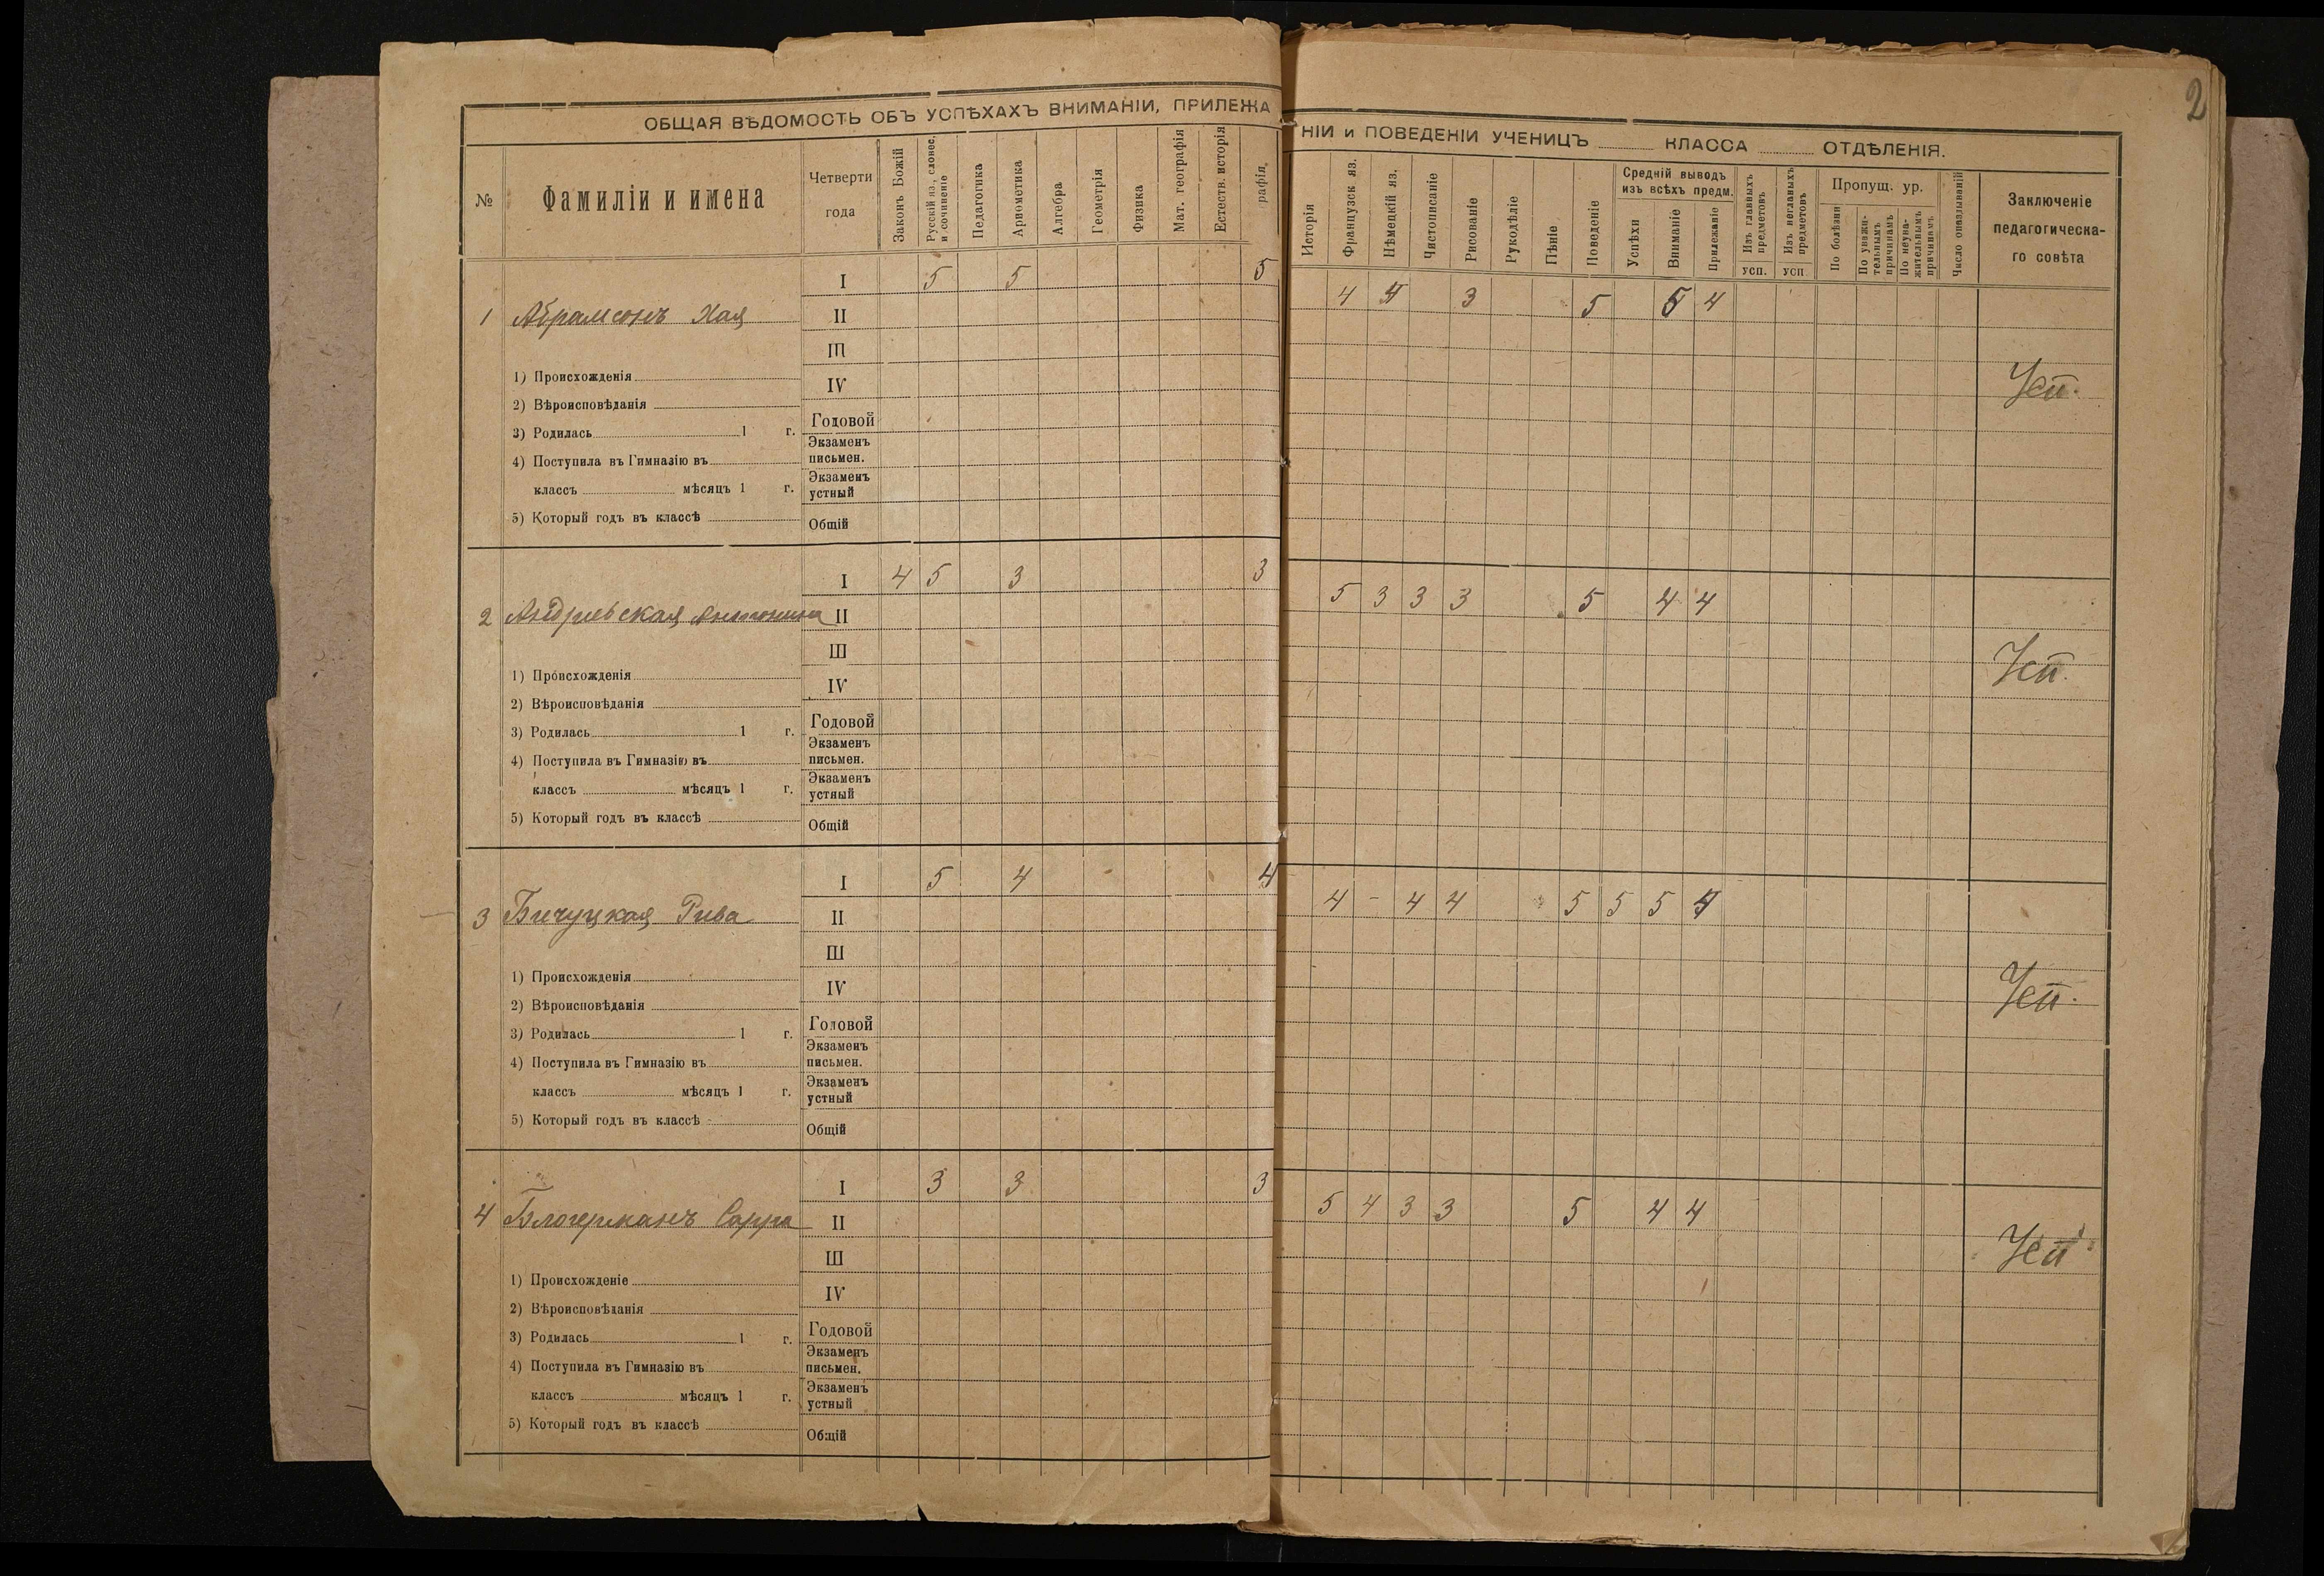 2
ОБЩАЯ ВѢДОМОСТЬ ОБЪ УСПѢХАХЪ ВНИМАНІИ, ПРИЛЕЖАНІИ и ПОВЕДЕНІИ УЧЕНИЦЪ КЛАССА ОТДѢЛЕНІЯ.
№ Фамиліи и имена Четверти года Законъ Божій Русскій яз., словес. и сочиненіе Педагогика Ариѳметика Алгебра Геометрія Физика Мат. географія Естеств. исторія рафія. Исторія Французск яз. Нѣмецкій яз. Чистописаніе Рисованіе Рукодѣліе Пѣніе Поведеніе Средній выводъ изъ всѣхъ предм. Успѣхи Вниманіе Прилежаніе Изъ главныхъ предметовъ усп. Изъ неглавныхъ предметовъ усп Пропущ. ур. По болѣзни По уважительнымъ причинамъ По неуважительнымъ причинамъ Число опаздываній Заключеніе педагогическаго совѣта
I 5 5 5 4 4 3 5 5 4
1 Абрамсонъ Хая II
III
1) Происхожденія IV Усп.
2) Вѣроисповѣданія
Годовой
3) Родилась 1 г.
Экзаменъ письмен.
4) Поступила въ Гимназію въ
Экзаменъ устный
классъ мѣсяцъ 1 г.
5) Который годъ въ классѣ
Общій
I 4 5 3 3 5 3 3 3 5 4 4
2 Андріевская Антонина II
III
1) Происхожденія IV Усп.
2) Вѣроисповѣданія
Годовой
3) Родилась 1 г.
Экзаменъ письмен.
4) Поступила въ Гимназію въ
Экзаменъ устный
классъ мѣсяцъ 1 г.
5) Который годъ въ классѣ
Общій
I 5 4 4 4 - 4 4 5 5 5 4
3 Бичуцкая Рива II
III
1) Происхожденія IV Усп.
2) Вѣроисповѣданія
Годовой
3) Родилась 1 г.
Экзаменъ письмен.
4) Поступила въ Гимназію въ
Экзаменъ устный
классъ мѣсяцъ 1 г.
5) Который годъ въ классѣ
Общій
I 3 3 3 5 4 3 3 5 4 4
4 Блогерманъ Сарра II
III
1) Происхожденіе IV Усп
2) Вѣроисповѣданія
Годовой
3) Родилась 1 г.
Экзаменъ письмен.
4) Поступила въ Гимназію въ
Экзаменъ устный
классъ мѣсяцъ 1 г.
5) Который годъ въ классѣ
Общій